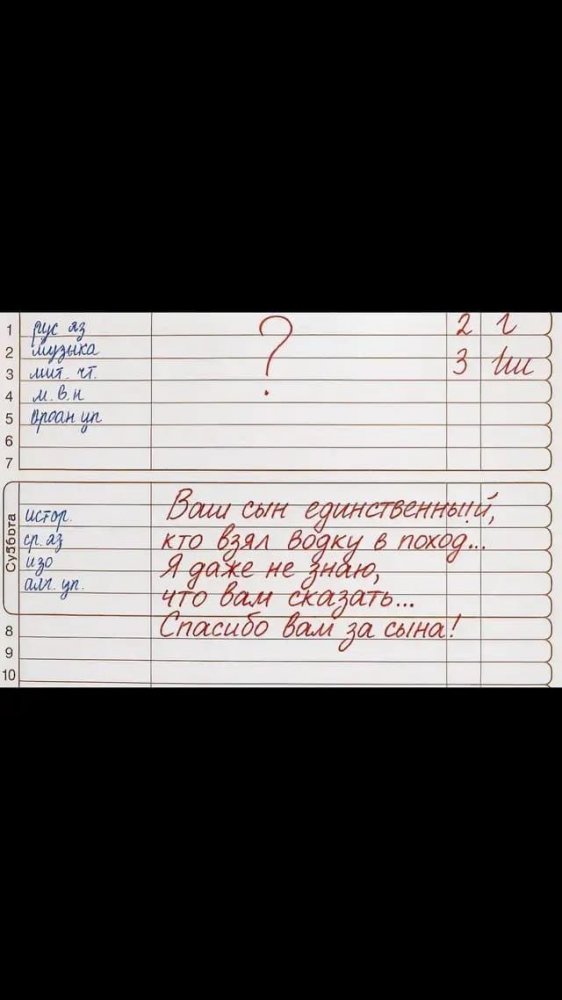 1 рус яз ? 2
2 музыка
3 лит. чт. 3
4 м.в.н
5
6
7
Суббота
истор. Ваш сын единственный,
ср. яз кто взял водку в поход...
изо Я даже не знаю,
алг. уп. что вам сказать...
8 Спасибо вам за сына!
9
10